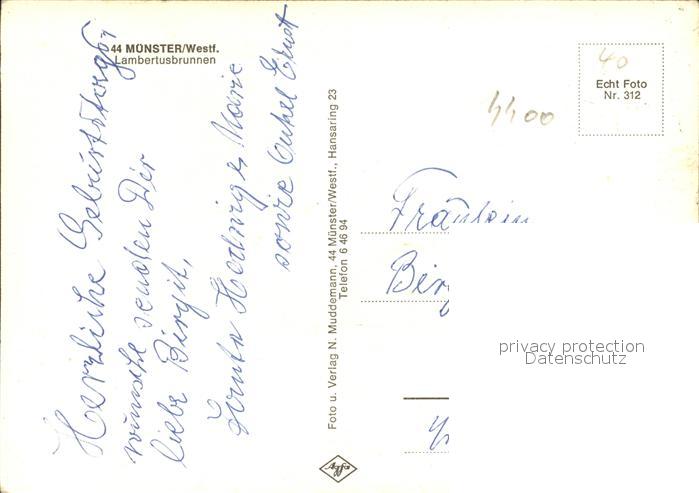 44 MÜNSTER/Westf.
Lambertusbrunnen
Herzliche Geburtstags-
wünsche senden Dir
liebe Birgit,
Tante Hedwig u. Marie
sowie Onkel Ernst
Foto u. Verlag N. Muddemann, 44 Münster/Westf., Hansaring 23
Telefon 6 46 94
Agfa
40
Echt Foto
Nr. 312
4400
Fräulein
Bir
privacy protection
Datenschutz